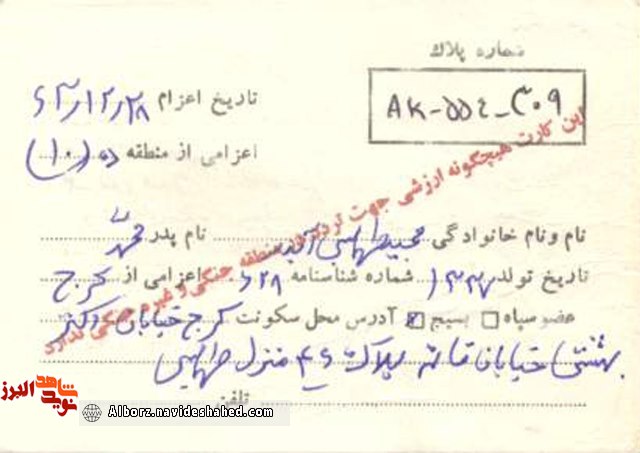 شماره پلاک
AK-۵۵٤-۳۰۹
تاریخ اعزام ۲۸ر۱۲ر۶۳
اعزامی از منطقه ده (۱۰)
این کارت هیچگونه ارزشی جهت تردد در منطقه جنگی و غیره جنگی ندارد
نام و نام خانوادگی مجید طهماسبی نام پدر محمد
تاریخ تولد ۱۳۴۷ شماره شناسنامه ۶۲۸ اعزامی از کرج
عضو سپاه بسیج آدرس محل سکونت کرج خیابان دکتر
بهشتی خیابان پلاک ۴۶ منزل طهماسبی
تلفن
شاهد نوید البرز
Alborz.navideshahed.com